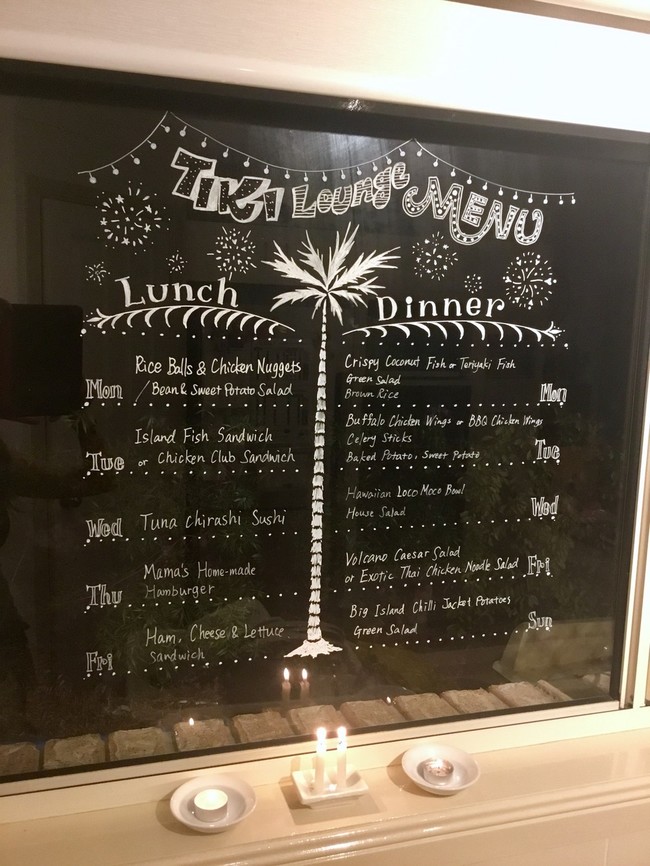 Tiki Lounge MENU
Lunch
Mon
Rice Balls & Chicken Nuggets
/ Bean & Sweet Potato Salad
Tue
Island Fish Sandwich
or Chicken Club Sandwich
Wed
Tuna Chirashi Sushi
Thu
Mama's Home-made
Hamburger
Fri
Ham, Cheese & Lettuce
Sandwich
Dinner
Crispy Coconut Fish or Teriyaki Fish
Green Salad
Brown Rice
Mon
Buffalo Chicken Wings or BBQ Chicken Wings
Celery Sticks
Baked Potato, Sweet Potato
Tue
Hawaiian Loco Moco Bowl
House Salad
Wed
Volcano Caesar Salad
or Exotic Thai Chicken Noodle Salad
Fri
Big Island Chilli Jacket Potatoes
Green Salad
Sun